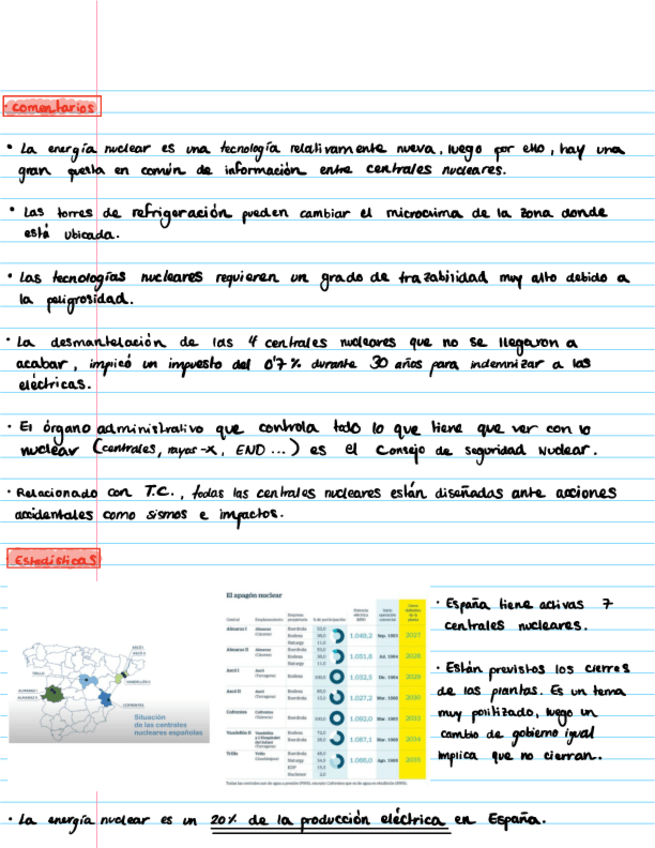 · Comentarios
• La energía nuclear es una tecnología relativamente nueva, luego por ello, hay una
gran puesta en común de información entre centrales nucleares.
• Las torres de refrigeración pueden cambiar el microclima de la zona donde
está ubicada.
• Las tecnologías nucleares requieren un grado de trazabilidad muy alto debido a
la peligrosidad.
· La desmantelación de las 4 centrales nucleares que no se llegaron a
acabar, implicó un impuesto del 0'7% durante 30 años para indemnizar a las
eléctricas.
· El órgano administrativo que controla todo lo que tiene que ver con lo
nuclear (centrales, rayos-x, END ...) es el Consejo de Seguridad Nuclear.
· Relacionado con T.C., todas las centrales nucleares están diseñadas ante acciones
accidentales como sismos e impactos.
· Estadísticas
Situación
de las centrales
nucleares españolas
TRILLO
ASCÓ I
ASCÓ II
VANDELLÓS II
ALMARAZ I
ALMARAZ II
COFRENTES
El apagón nuclear
Central Emplazamiento Empresa propietaria % de participación
Almaraz I Almaraz (Cáceres) Iberdrola Endesa Naturgy 1.049,2 Sep. 1983 2027
Almaraz II Almaraz (Cáceres) Iberdrola Endesa Naturgy Jul. 1984 2028
Ascó I Ascó (Tarragona) Endesa 100,0 1.032,5 Dic. 1984 2029
Ascó II Ascó (Tarragona) Endesa Iberdrola 1.027,2 Mar. 1986
Cofrentes Cofrentes Iberdrola 100,0 1.092,0 Mar. 1985
Vandellós II Vandellòs y l'Hospitalet del Infant (Tarragona) Endesa Iberdrola 72,0 28,0 1.087,1 Mar. 1988
Trillo Trillo (Guadalajara) Iberdrola Naturgy EDP Nuclenor Ago. 1988 2035
· España tiene activas 7
centrales nucleares.
· Están previstos los cierres
de las plantas. Es un tema
muy politizado, luego un
cambio de gobierno igual
implica que no cierran.
· La energía nuclear es un 20% de la producción eléctrica en España.